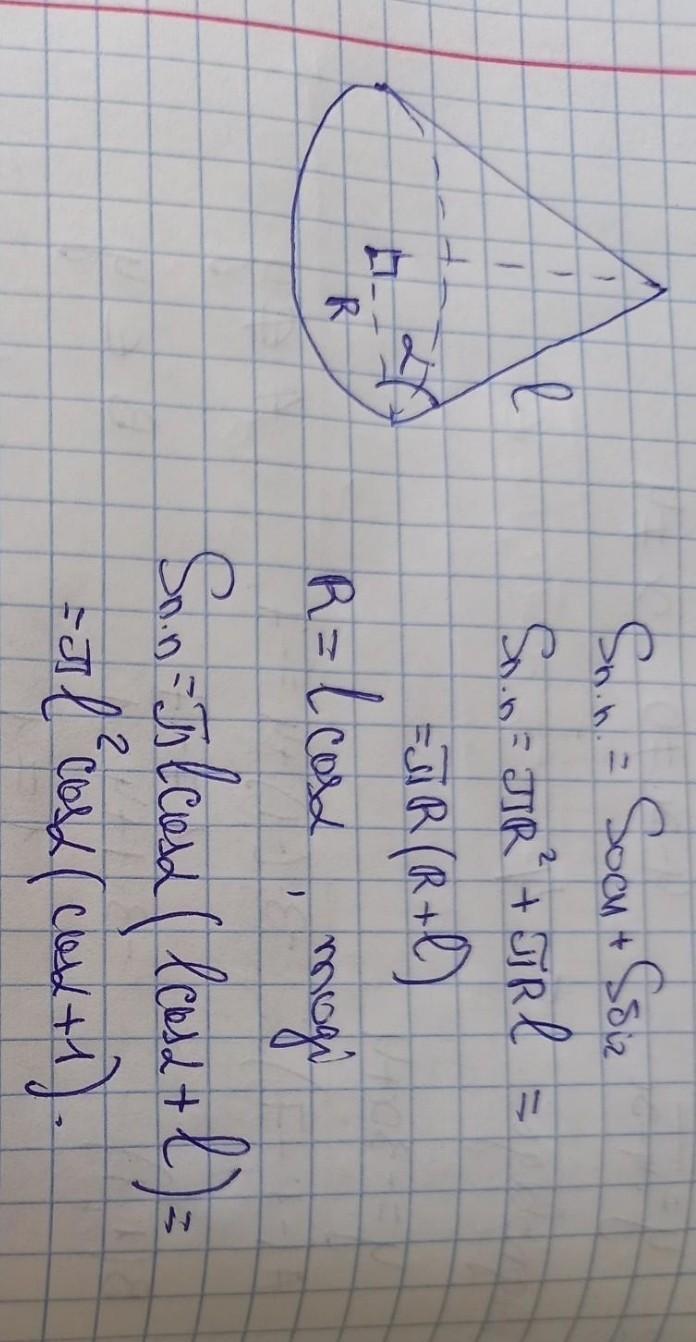 l
α
R
Sп.п. = Sосн + Sбіч
Sп.п = πR² + πRl =
= πR(R+l)
R = l cosα , тоді
Sп.п = πl cosα (l cosα + l) =
= πl² cosα (cosα + 1).